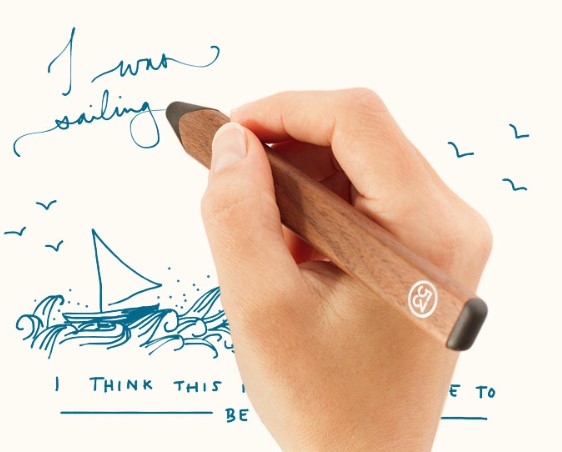 I was
sailing
53
I THINK THIS
E TO
BE